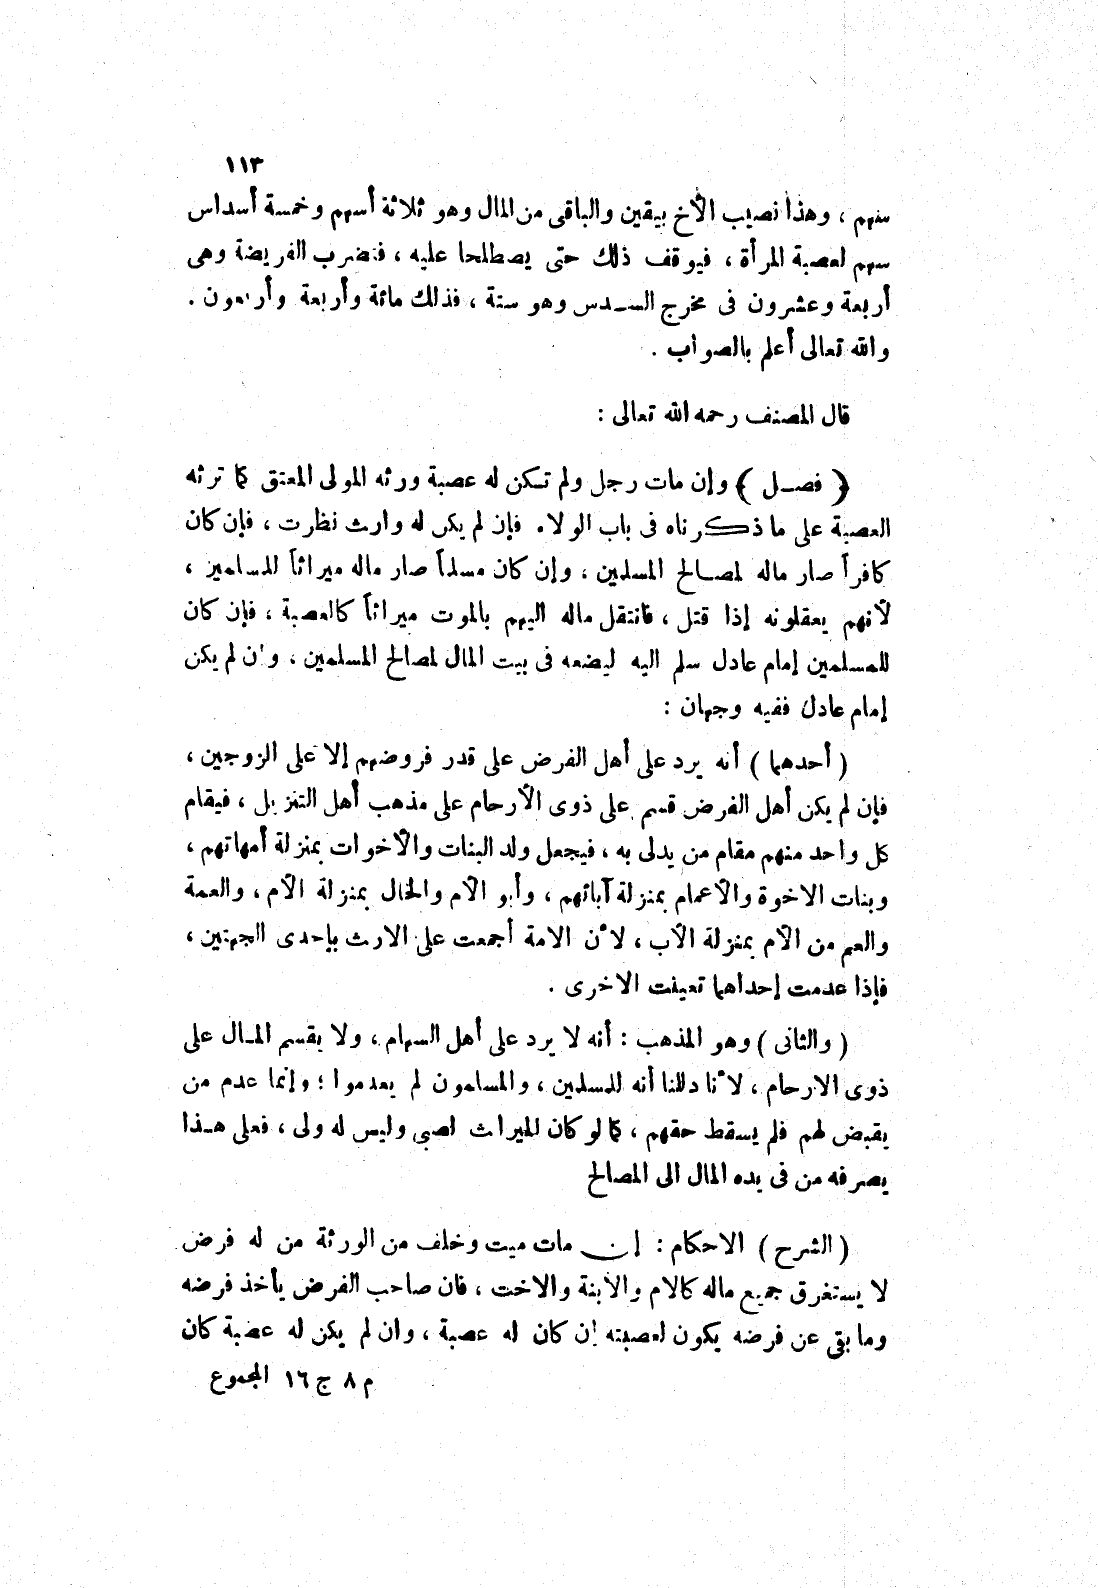 ١١٣
سهم ، وهذا نصيب الأخ بيقين والباقى من المال وهو ثلاثة أسهم وخمسة أسداس
سهم لعصبة المرأة ، فيوقف ذلك حتى يصطلحا عليه ، فتضرب الفريضة وهى
أربعة وعشرون فى مخرج السـدس وهو ستة ، فذلك مائة وأربعة وأربعون .
والله تعالى أعلم بالصواب .
قال المصنف رحمه الله تعالى :
( فصـل ) وإن مات رجل ولم تكن له عصبة ورثه المولى المعتق كما ترثه
العصبة على ما ذكرناه فى باب الولاء . فإن لم يكن له وارث نظرت ، فإن كان
كافراً صار ماله لمصـالح المسلمين ، وإن كان مسلماً صار ماله ميراثاً للمسلمين ،
لأنهم يعقلونه إذا قتل ، فانتقل ماله اليهم بالموت ميراثاً كالعصبة ، فإن كان
للمسلمين إمام عادل سلم اليه ليضعه فى بيت المال لمصالح المسلمين ، وإن لم يكن
إمام عادل ففيه وجهان :
( أحدهما ) أنه يرد على أهل الفرض على قدر فروضهم إلا على الزوجين ،
فإن لم يكن أهل الفرض قسم على ذوى الأرحام على مذهب أهل التنزيل ، فيقام
كل واحد منهم مقام من يدلى به ، فيجعل ولد البنات والأخوات بمنزلة أمهاتهم ،
وبنات الاخوة والأعمام بمنزلة آبائهم ، وأبو الأم والخال بمنزلة الأم ، والعمة
والعم من الأم بمنزلة الأب ، لأن الامة أجمعت على الارث بإحدى الجهتين ،
فإذا عدمت إحداهما تعينت الاخرى .
( والثانى ) وهو المذهب : أنه لا يرد على أهل السهام ، ولا يقسم المـال على
ذوى الارحام ، لأنا دللنا أنه للمسلمين ، والمسلمون لم يعدموا ؛ وإنما عدم من
يقبض لهم فلم يسقط حقهم ، كما لو كان الميراث لصبى وليس له ولى ، فعلى هـذا
يصرفه من فى يده المال الى المصالح
( الشرح ) الاحكام : إن مات ميت وخلف من الورثة من له فرض
لا يستغرق جميع ماله كالام والأبنة والاخت ، فان صاحب الفرض يأخذ فرضه
وما بقى عن فرضه يكون لعصبته إن كان له عصبة ، وان لم يكن له عصبة كان
م ٨ ج ١٦ المجموع